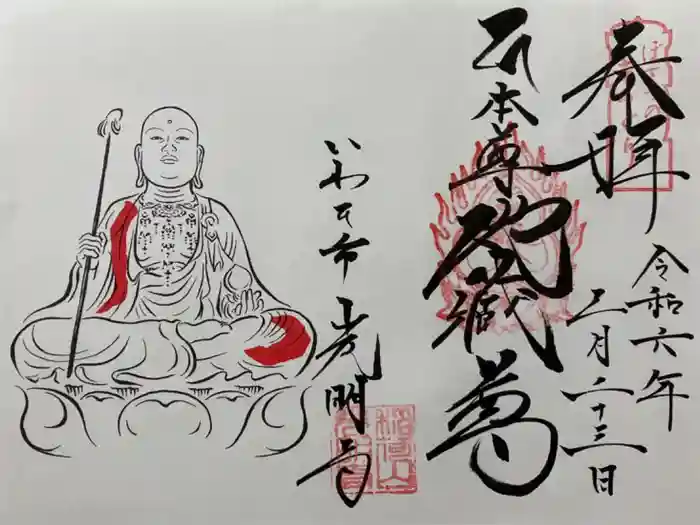 奉拝
令和六年
二月二十三日
御本尊
地蔵尊
いわき市
光明寺